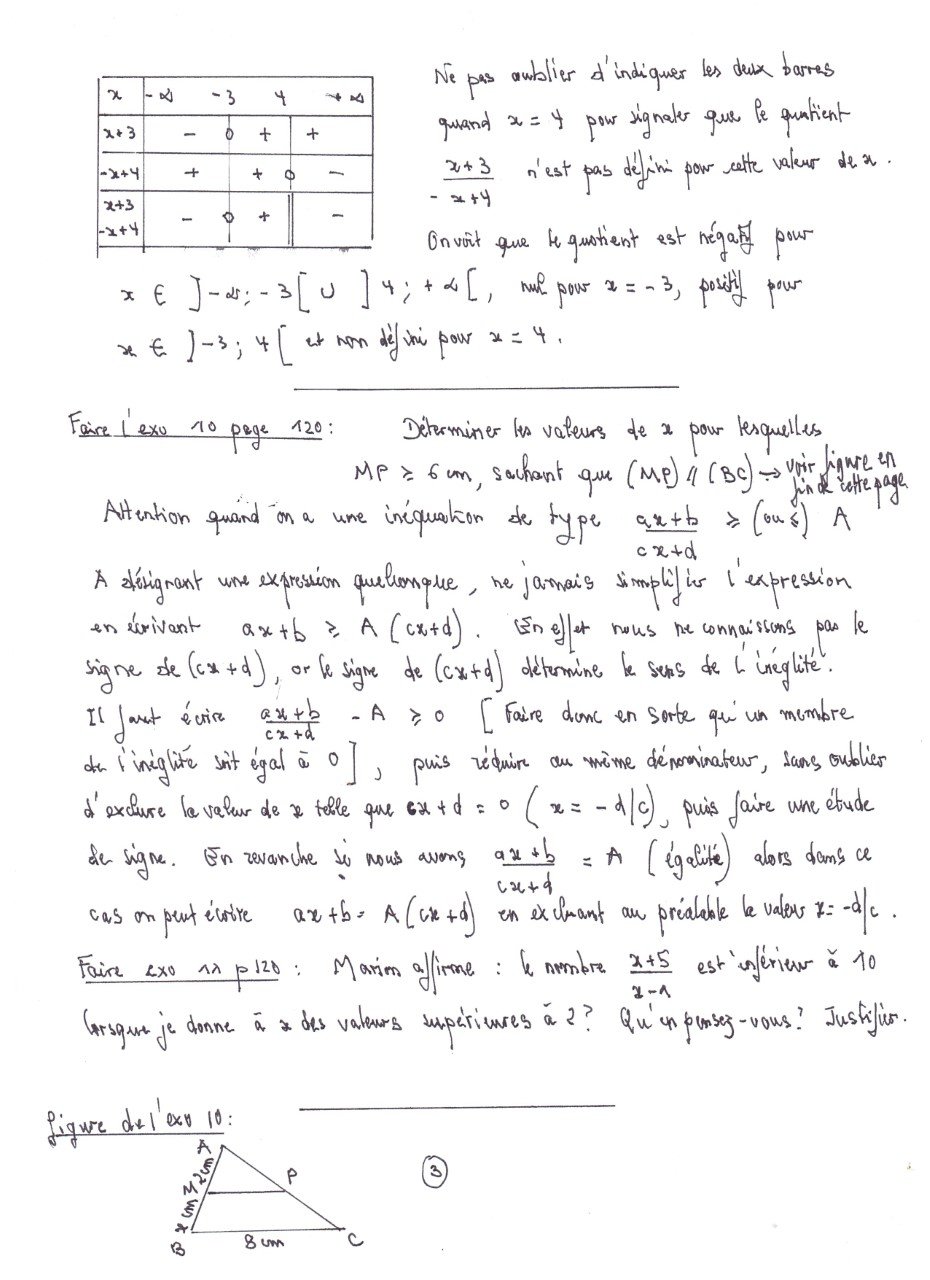 x -∞ -3 4 +∞
x+3 - 0 + +
-x+4 + + 0 -
x+3
-x+4 - 0 + -
Ne pas oublier d'indiquer les deux barres
quand x = 4 pour signaler que le quotient
x+3 n'est pas défini pour cette valeur de x.
-x+4
On voit que le quotient est négatif pour
x ∈ ]-∞; -3[ ∪ ]4; +∞[, nul pour x = -3, positif pour
x ∈ ]-3; 4[ et non défini pour x = 4.
Faire l'exo 10 page 120: Déterminer les valeurs de x pour lesquelles
MP ≥ 6 cm, sachant que (MP) // (BC) → voir figure en
fin de cette page
Attention quand on a une inéquation de type ax+b ≥ (ou ≤) A
cx+d
A désignant une expression quelconque, ne jamais simplifier l'expression
en écrivant ax+b ≥ A(cx+d). En effet nous ne connaissons pas le
signe de (cx+d), or le signe de (cx+d) détermine le sens de l'inéglité.
Il faut écrire ax+b - A ≥ 0 [Faire donc en sorte qu'un membre
cx+d
de l'inéglité soit égal à 0], puis réduire au même dénominateur, sans oublier
d'exclure la valeur de x telle que cx+d = 0 (x = -d/c), puis faire une étude
de signe. En revanche si nous avons ax+b = A (égalité) alors dans ce
cx+d
cas on peut écrire ax+b = A(cx+d) en excluant au préalable la valeur x = -d/c.
Faire exo 11 p 120: Marion affirme : le nombre x+5 est inférieur à 10
x-1
lorsque je donne à x des valeurs supérieures à 2? Qu'en pensez-vous? Justifier.
figure de l'exo 10:
A
2cm
M P
x cm
B 8 cm C
3